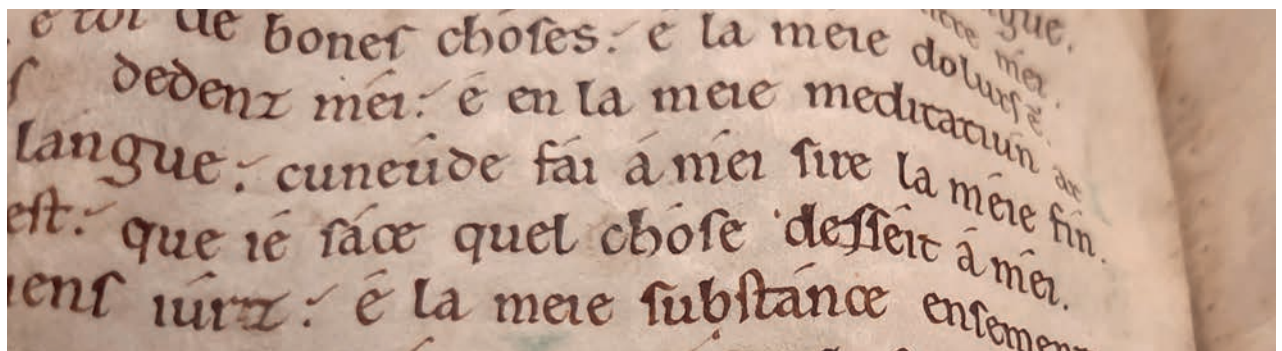 de bones choses. é la meie dolurs é
dedenz méi. é en la meie meditatiun
langue. cuneüde fái á méi sire la méie fin.
est. que ié sáce quel chóse desséit á méi.
iúrz. é la meie substánce ensement